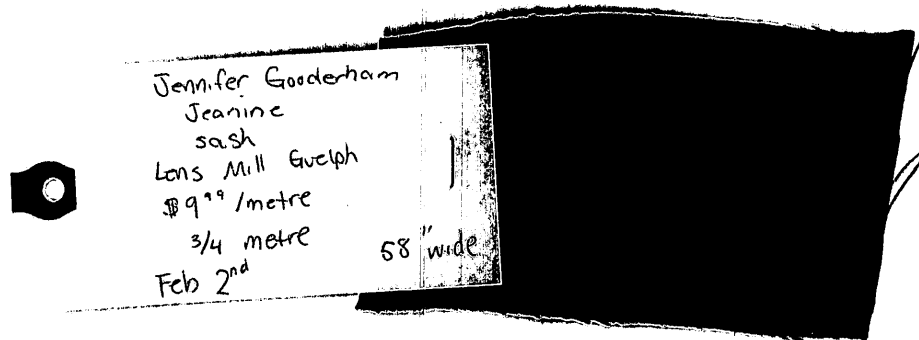 Jennifer Gooderham
Jeanine
sash
Lens Mill Guelph
$9⁹⁹ /metre
3/4 metre
58" wide
Feb 2nd